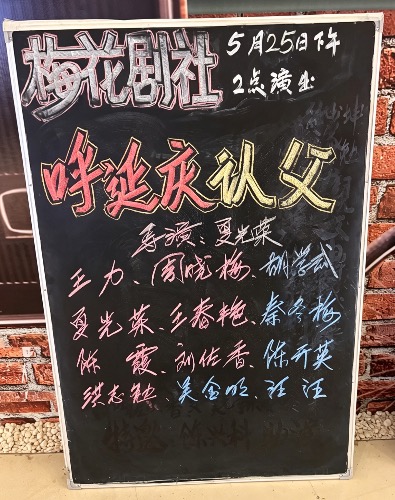 梅花剧社 5月25日下午
2点演出
呼延庆认父
导演：夏光荣
王力、周晓梅、胡学武
夏光荣、王春艳、秦冬梅
陈霞、刘佐香、陈开英
洪志敏、吴金明、汪汪